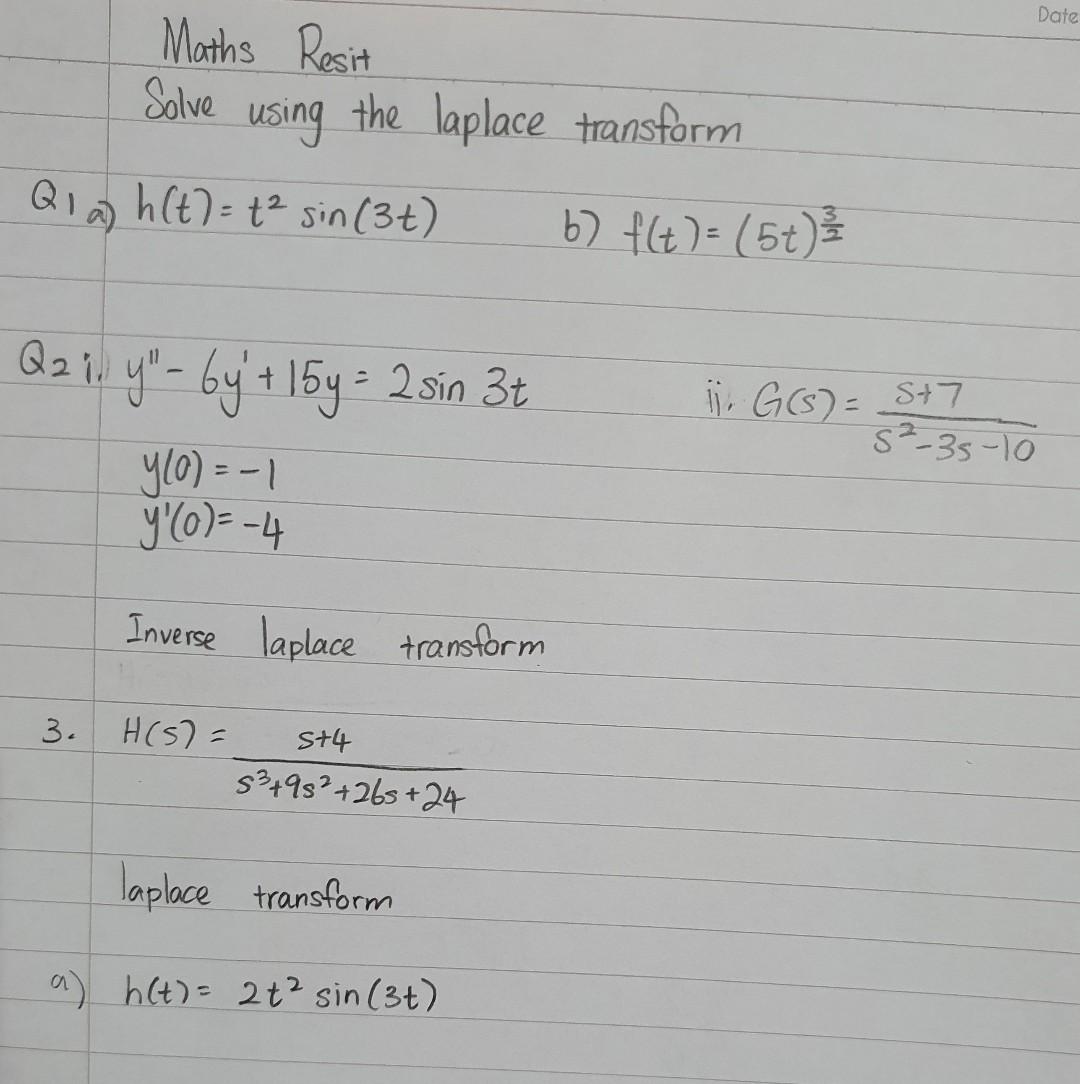 Date
Maths Resit
Solve using the laplace transform
Q1 a) h(t) = t² sin(3t) b) f(t) = (5t)^(3/2)
Q2 i. y'' - 6y' + 15y = 2 sin 3t ii. G(s) = (s+7)/(s²-3s-10)
y(0) = -1
y'(0) = -4
Inverse laplace transform
3. H(s) = (s+4)/(s³+9s²+26s+24)
laplace transform
a) h(t) = 2t² sin(3t)